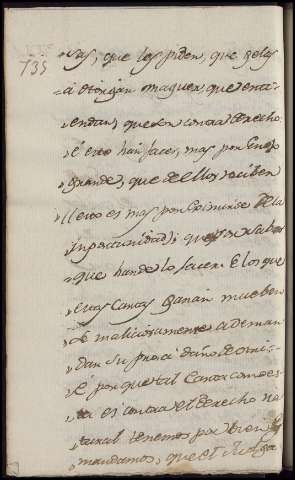 735
„sas, que los piden, que gelas
„á otorgan maguer, que entí-
„endan, que son contra derecho.
„E esto han facer, mas por Enojo
„grande, que de ellos reciben
„(esto es mas por Eximirse de la
„inportunidad) que por sabor
„que han de lo facer. E los que
„estas Cartas ganan mueben
„se maliciosamente a deman
„dan su pro a daño de otri:
„E porque tal Carta como es-
„ta es contra el derecho na
„tural tenemos por bien, y
„mandamos, que el Judga